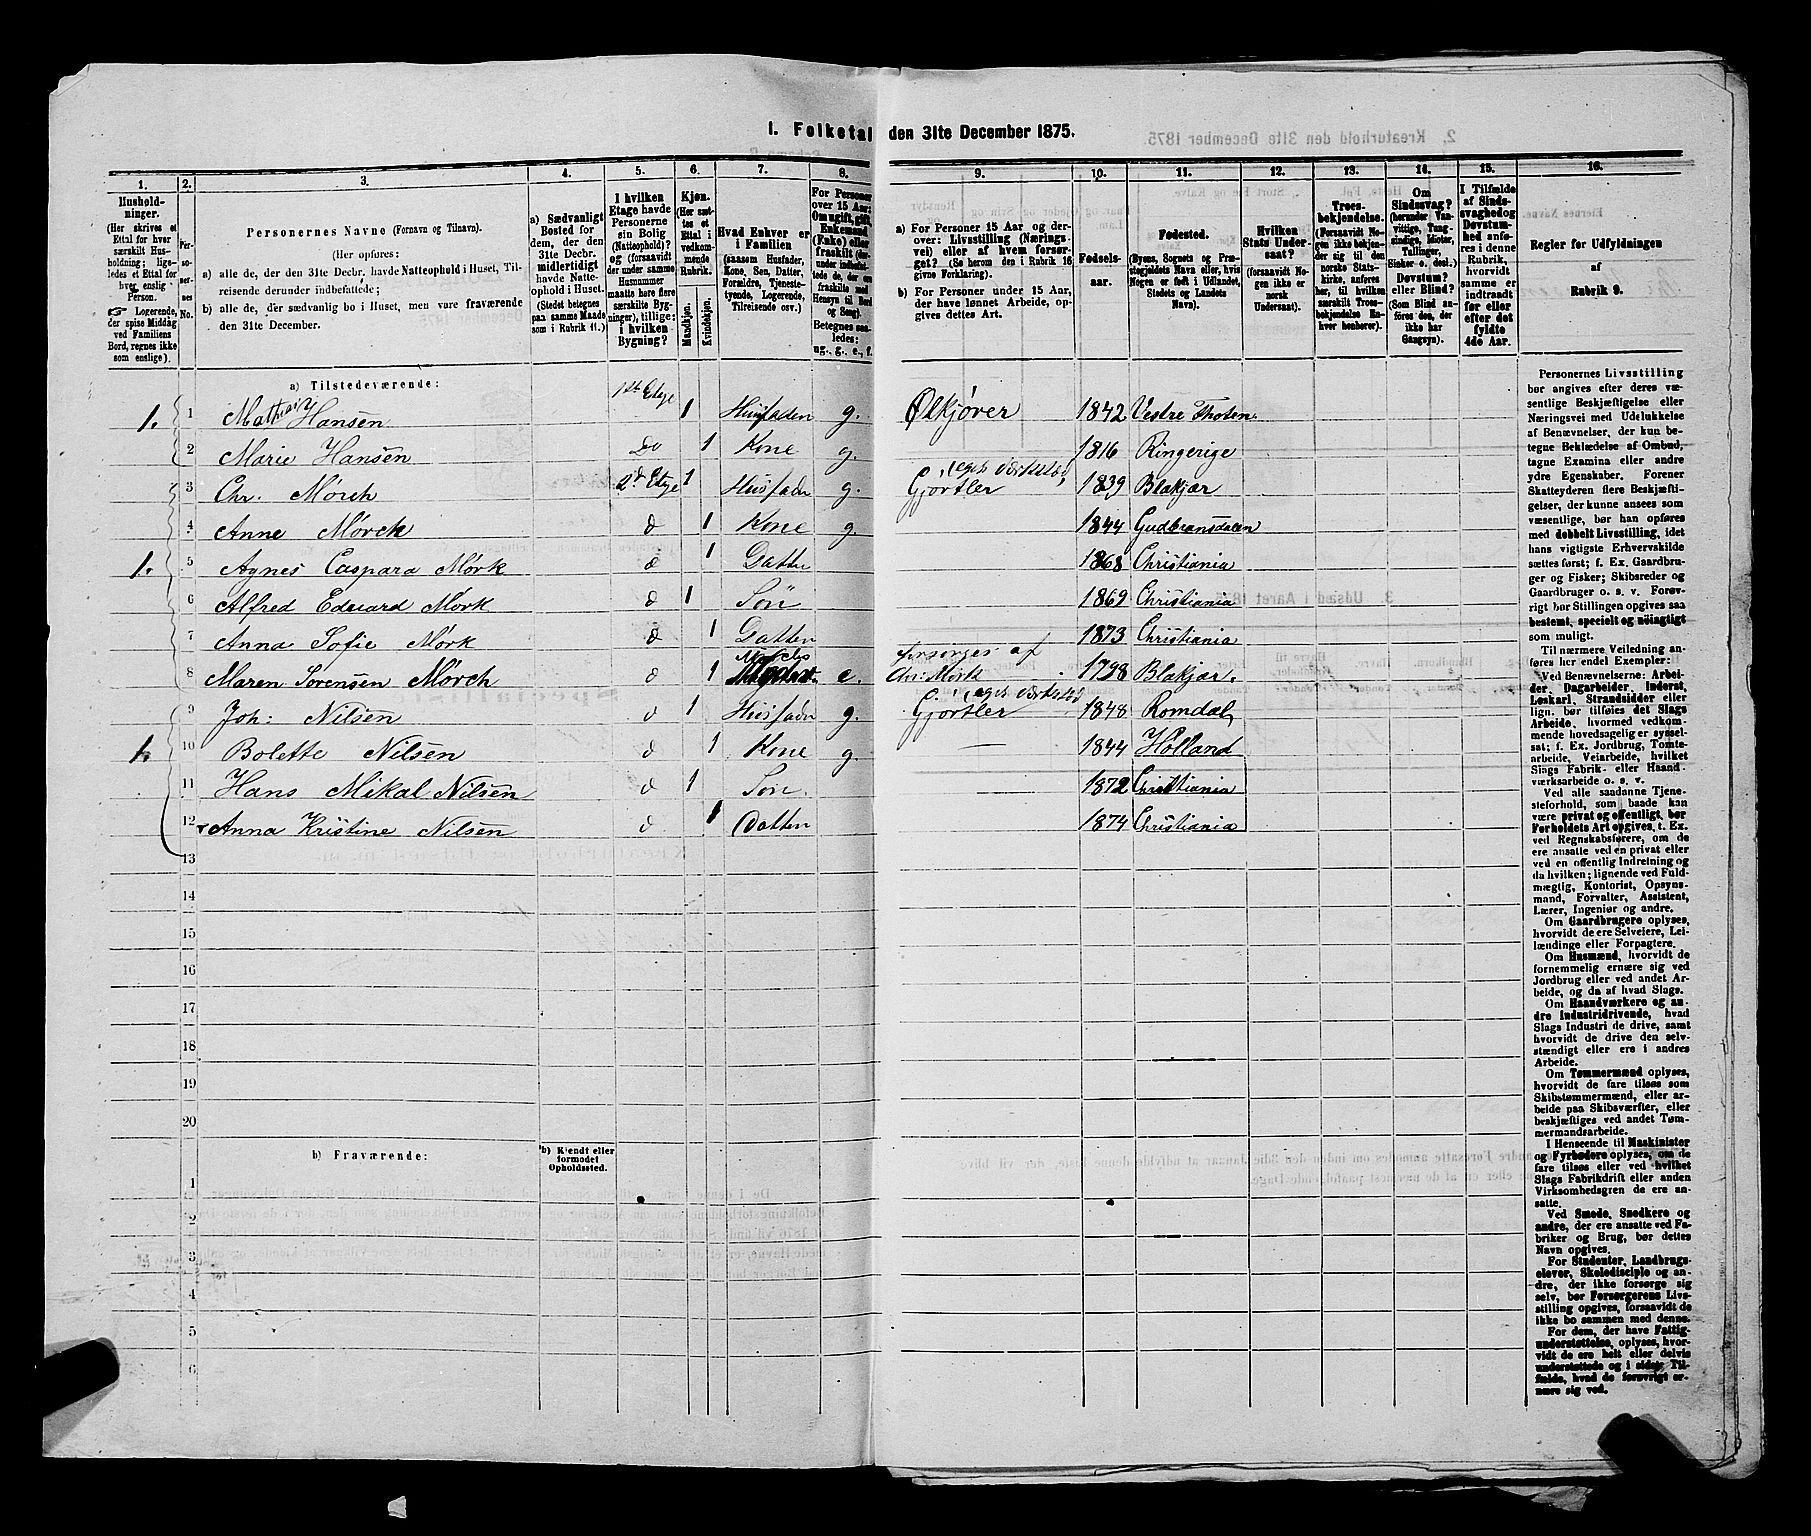 I. Folketal den 31te December 1875.
1. 2. 3. 4. 5. 6. 7. 8. 9. 10. 11. 12. 13. 14. 15. 16.
Husholdninger. (Her skrives et Ettal for hver særskilt Husholdning; ligeledes et Ettal for hver enslig Person. Logerende, der spise Middag ved Familiens Bord, regnes ikke som enslige).
Personernes No.
Personernes Navne (Fornavn og Tilnavn).
(Her opføres:
a) alle de, der den 31te Decbr. havde Natteophold i Huset, Tilreisende derunder indbefattede;
b) alle de, der sædvanlig bo i Huset, men vare fraværende den 31te December.
a) Sædvanligt Bosted for dem, der den 31te Decbr. midlertidigt havde Natteophold i Huset. (Stedet betegnes paa samme Maade som i Rubrik 11.)
I hvilken Etage havde Personerne sin Bolig (Natteophold)? og (forsaavidt der under samme Husnummer maatte høre flere særskilte Bygninger), tillige: i hvilken Bygning?
Kjøn. (Her sættes et Ettal i vedkommende Rubrik.
Mandkjøn. Kvindekjøn.
Hvad Enhver er i Familien (saasom Husfader, Kone, Søn, Datter, Forældre, Tjenestetyende, Logerende, Tilreisende osv.)
For Personer over 15 Aar: Om ugift, gift, Enkemand (Enke) eller fraskilt
Betegnes saaledes: ug., g., e., f.
a) For Personer 15 Aar og derover: Livsstilling (Næringsvei) eller af hvem forsørget? (Se herom den i Rubrik 16 givne Forklaring).
b) For Personer under 15 Aar, der have lønnet Arbeide, opgives dettes Art.
Fødselsaar.
Fødested. (Byens, Sognets og Præstegjeldets Navn eller, hvis Nogen er født i Udlandet, Stedets og Landets Navn).
Hvilken Stats Undersaat? (forsaavidt Nogen ikke er norsk Undersaat).
Troesbekjendelse. (Forsaavidt Nogen ikke bekjender sig til den norske Statskirke, anføres her, til hvilken særskilt Troesbekjendelse Enhver henhører).
Om Sindssvag? (herunder Vanvittige, Tungsindige, Idioter, Tullinger, Sinker o. desl.) Døvstum? eller Blind? (Som Blind anføres den, der ikke har Gangsyn).
I Tilfælde af Sindssvaghed og Døvstumhed anføres i denne Rubrik, hvorvidt samme er indtraadt før eller efter det fyldte 4de Aar.
Regler for Udfyldningen af Rubrik 9.
a) Tilstedeværende:
1. 1 Mathias Hansen 1ste Etage 1 Husfaden g. Ølkjører 1842 Vestre Thoten
2 Marie Hansen Do 1 Kone g. 1816 Ringerige
3 Chr. Mørch 2d Etage 1 Husfadn g. Gjørtler, eget Værksted, 1839 Blakjær
4 Anne Mørch d 1 Kone g. 1844 Gudbransdalen
1. 5 Agnes Caspara Mørk d 1 Datter 1868 Christiania
6 Alfred Eduard Mørk d 1 Søn 1869 Christiania
7 Anna Sofie Mørk d 1 Datter 1873 Christiania
8 Maren Sørensen Mørch d 1 e. forsørges af Chr: Mørk 1798 Blakjær.
9 Joh: Nilsen d 1 Husfadn g. Gjørtler, eget Værksted 1848 Romdal
1. 10 Bolette Nilsen d 1 Kone g. — 1844 Holland
11 Hans Mikal Nilsen d 1 Søn. — 1872 Christiania
12 Anna Kristine Nilsen d 1 Datter 1874 Christiania
13
14
15
16
17
18
19
20
b) Fraværende: b) Kjendt eller formodet Opholdssted.
1
2
3
4
5
6
Personernes Livsstilling
bør angives efter deres væ-
sentlige Beskjæftigelse eller
Næringsvei med Udelukkelse
af Benævnelser, der kun be-
tegne Beklædelse af Ombud,
tagne Examina eller andre
ydre Egenskaber. Forener
Skatteyderen flere Beskjæfti-
gelser, der kunne ansees som
væsentlige, bør han opføres
med dobbelt Livsstilling, idet
hans vigtigste Erhvervskilde
sættes først; f. Ex. Gaardbru-
ger og Fisker; Skibsreder og
Gaardbruger o. s. v. Forøv-
rigt bør Stillingen opgives saa
bestemt, specielt og nøiagtigt
som muligt.
Til nærmere Veiledning an-
føres her endel Exempler:
Ved Benævnelserne: Arbei-
der, Dagarbeider, Inderst,
Løskarl, Strandsidder eller
lign. bør tilføies det Slags
Arbeide, hvormed vedkom-
mende hovedsagelig er syssel-
sat; f. Ex. Jordbrug, Tomte-
arbeide, Veiarbeide, hvilket
Slags Fabrik- eller Haand-
værksarbeide o. s. v.
Ved alle saadanne Tjene-
steforhold, som baade kan
være privat og offentligt, bør
Forholdets Art opgives, t. Ex.
ved Regnskabsførere, om de
ere ansatte ved en privat eller
ved en offentlig Indretning og
da hvilken; lignende ved Fuld-
mægtig, Kontorist, Opsyns-
mand, Forvalter, Assistent,
Lærer, Ingeniør og andre.
Om Gaardbrugere oplyses,
hvorvidt de ere Selveiere, Lei-
lændinge eller Forpagtere.
Om Husmænd, hvorvidt de
fornemmelig ernære sig ved
Jordbrug eller ved andet Ar-
beide, og da af hvad Slags.
Om Haandværkere og an-
dre Industridrivende, hvad
Slags Industri de drive, samt
hvorvidt de drive den selv-
stændigt eller ere i andres
Arbeide.
Om Tømmermænd oplyses,
hvorvidt de fare tilsøs som
Skibstømmermænd, eller ar-
beide paa Skibsværfter, eller
beskjæftiges ved andet Tøm-
mermandsarbeide.
I Henseende til Maskinister
og Fyrbødere oplyses, om de
fare tilsøs eller ved hvilket
Slags Fabrikdrift eller anden
Virksomhedsgren de ere an-
satte.
Ved Smede, Snedkere og
andre, der ere ansatte ved Fa-
briker og Brug, bør dettes
Navn opgives.
For Studenter, Landbrugs-
elever, Skoledisciple og an-
dre, der ikke forsørge sig
selv, bør Forsørgerens Livs-
stilling opgives, forsaavidt de
ikke bo sammen med denne.
For dem, der have Fattig-
understøttelse, oplyses, hvor-
vidt de ere helt eller delvis
understøttede og i sidste Til-
fælde, hvad de forøvrigt er-
nære sig ved.